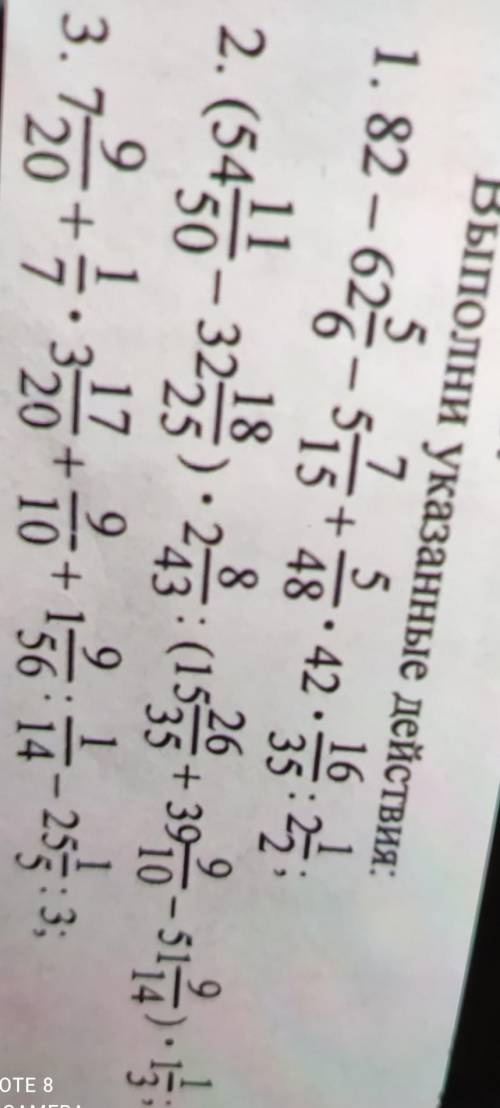 Выполни указанные действия:
1. 82 − 62 5/6 − 5 7/15 + 5/48 · 42 · 16/35 : 2 1/2;
2. (54 11/50 − 32 18/25) · 2 8/43 : (15 26/35 + 39 9/10 − 51 9/14) · 1 1/3;
3. 7 9/20 + 1/7 · 3 17/20 + 9/10 + 1 9/56 : 1/14 − 25 1/5 : 3;
OTE 8